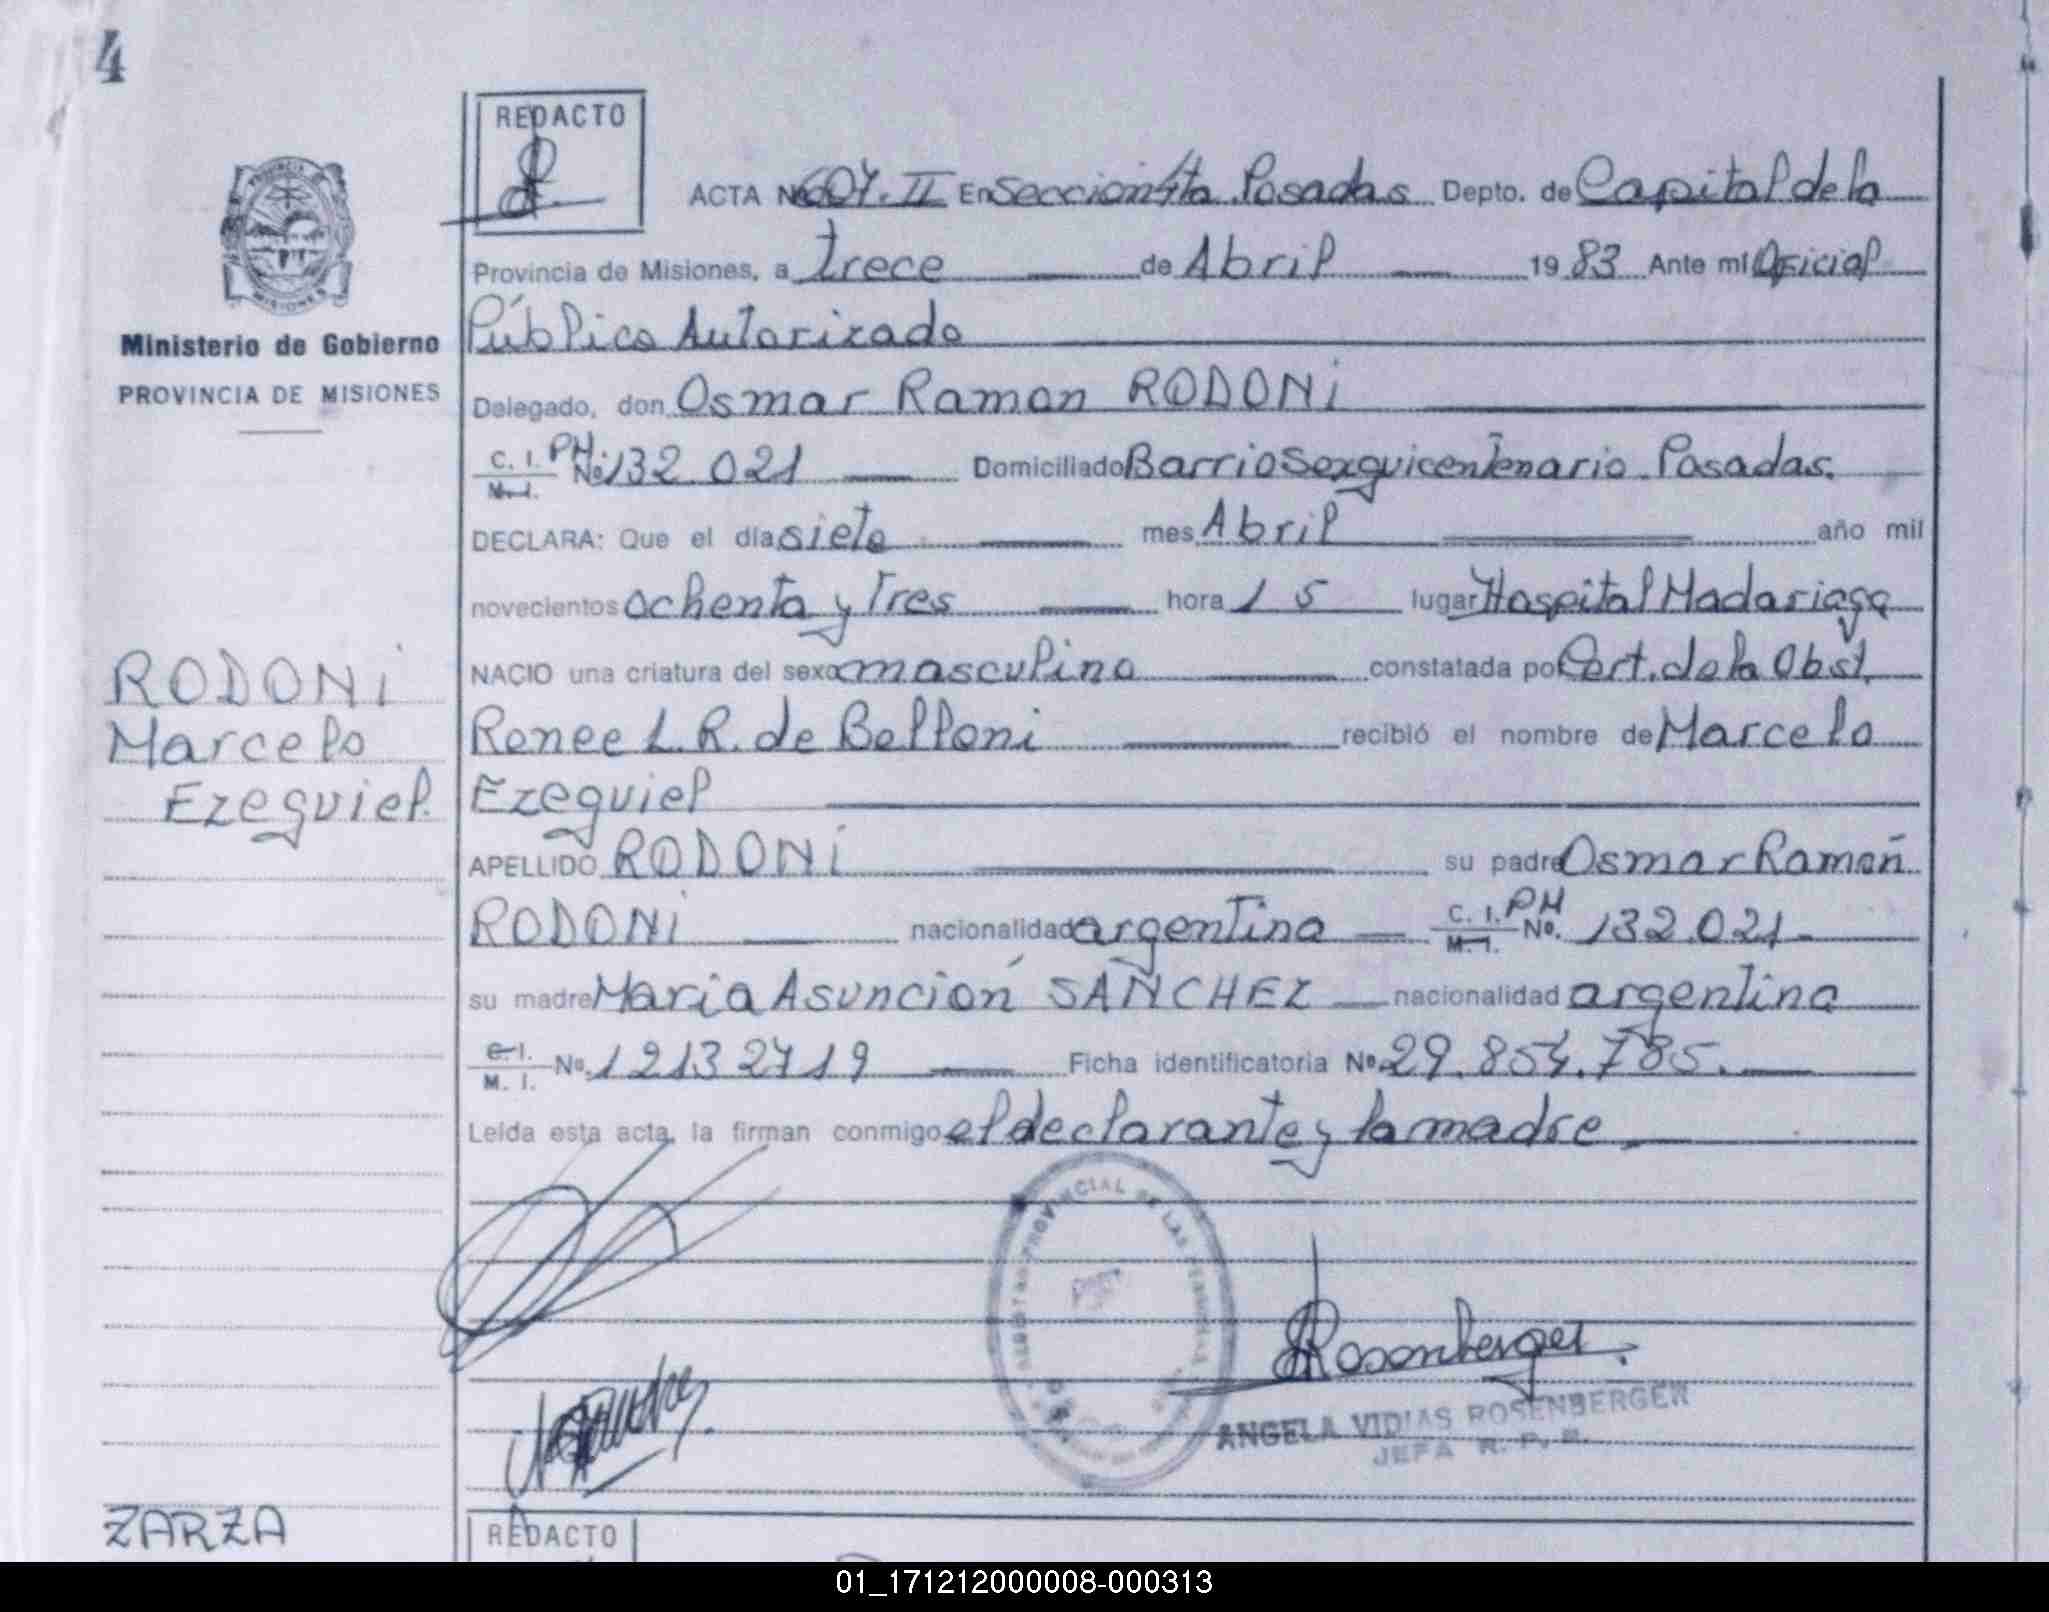 4
REDACTO
ACTA Nº 607. II En Sección 4ta. Posadas Depto. de Capital de la
Provincia de Misiones, a trece de Abril 19 83 Ante mí Oficial
Público Autorizado
Ministerio de Gobierno
PROVINCIA DE MISIONES
Delegado, don Osmar Ramon RODONi
C. I. PH
M. I. No. 132.021 Domiciliado Barrio Sexquicentenario. Posadas.
DECLARA: Que el día siete mes Abril año mil
novecientos ochenta y tres hora 15 lugar Hospital Madariaga
NACIO una criatura del sexo masculino constatada por Cert. de la Obst.
Renee L. R. de Belloni recibió el nombre de Marcelo
Ezequiel
RODONi
Marcelo
Ezequiel.
APELLIDO RODONi su padre Osmar Ramón
RODONi nacionalidad argentina C. I. PH
M. I. No. 132.021-
su madre María Asunción SANCHEZ nacionalidad argentina
C. I.
M. I. No. 12132719 Ficha identificatoria Nº 29.854.785.
Leída esta acta, la firman conmigo el declarante y la madre
PROVINCIAL DE LAS PERSONAS
Rosenberger.
ANGELA VIDIAS ROSENBERGER
JEFA R. P. P.
ZARZA
REDACTO
01_171212000008-000313